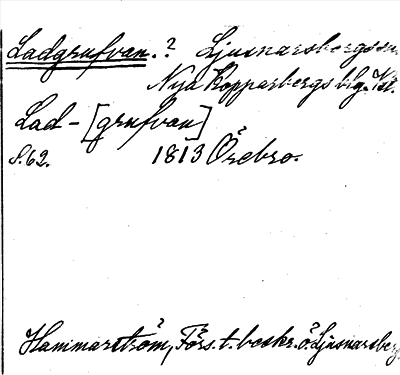 Ladgrufvan.? Ljusnarsbergs sn
Nya Kopparbergs blg.
Lad- [grufvan]
S. 62. 1813 Örebro.
Hammarström, Förs. t. beskr. ö. Ljusnarsberg